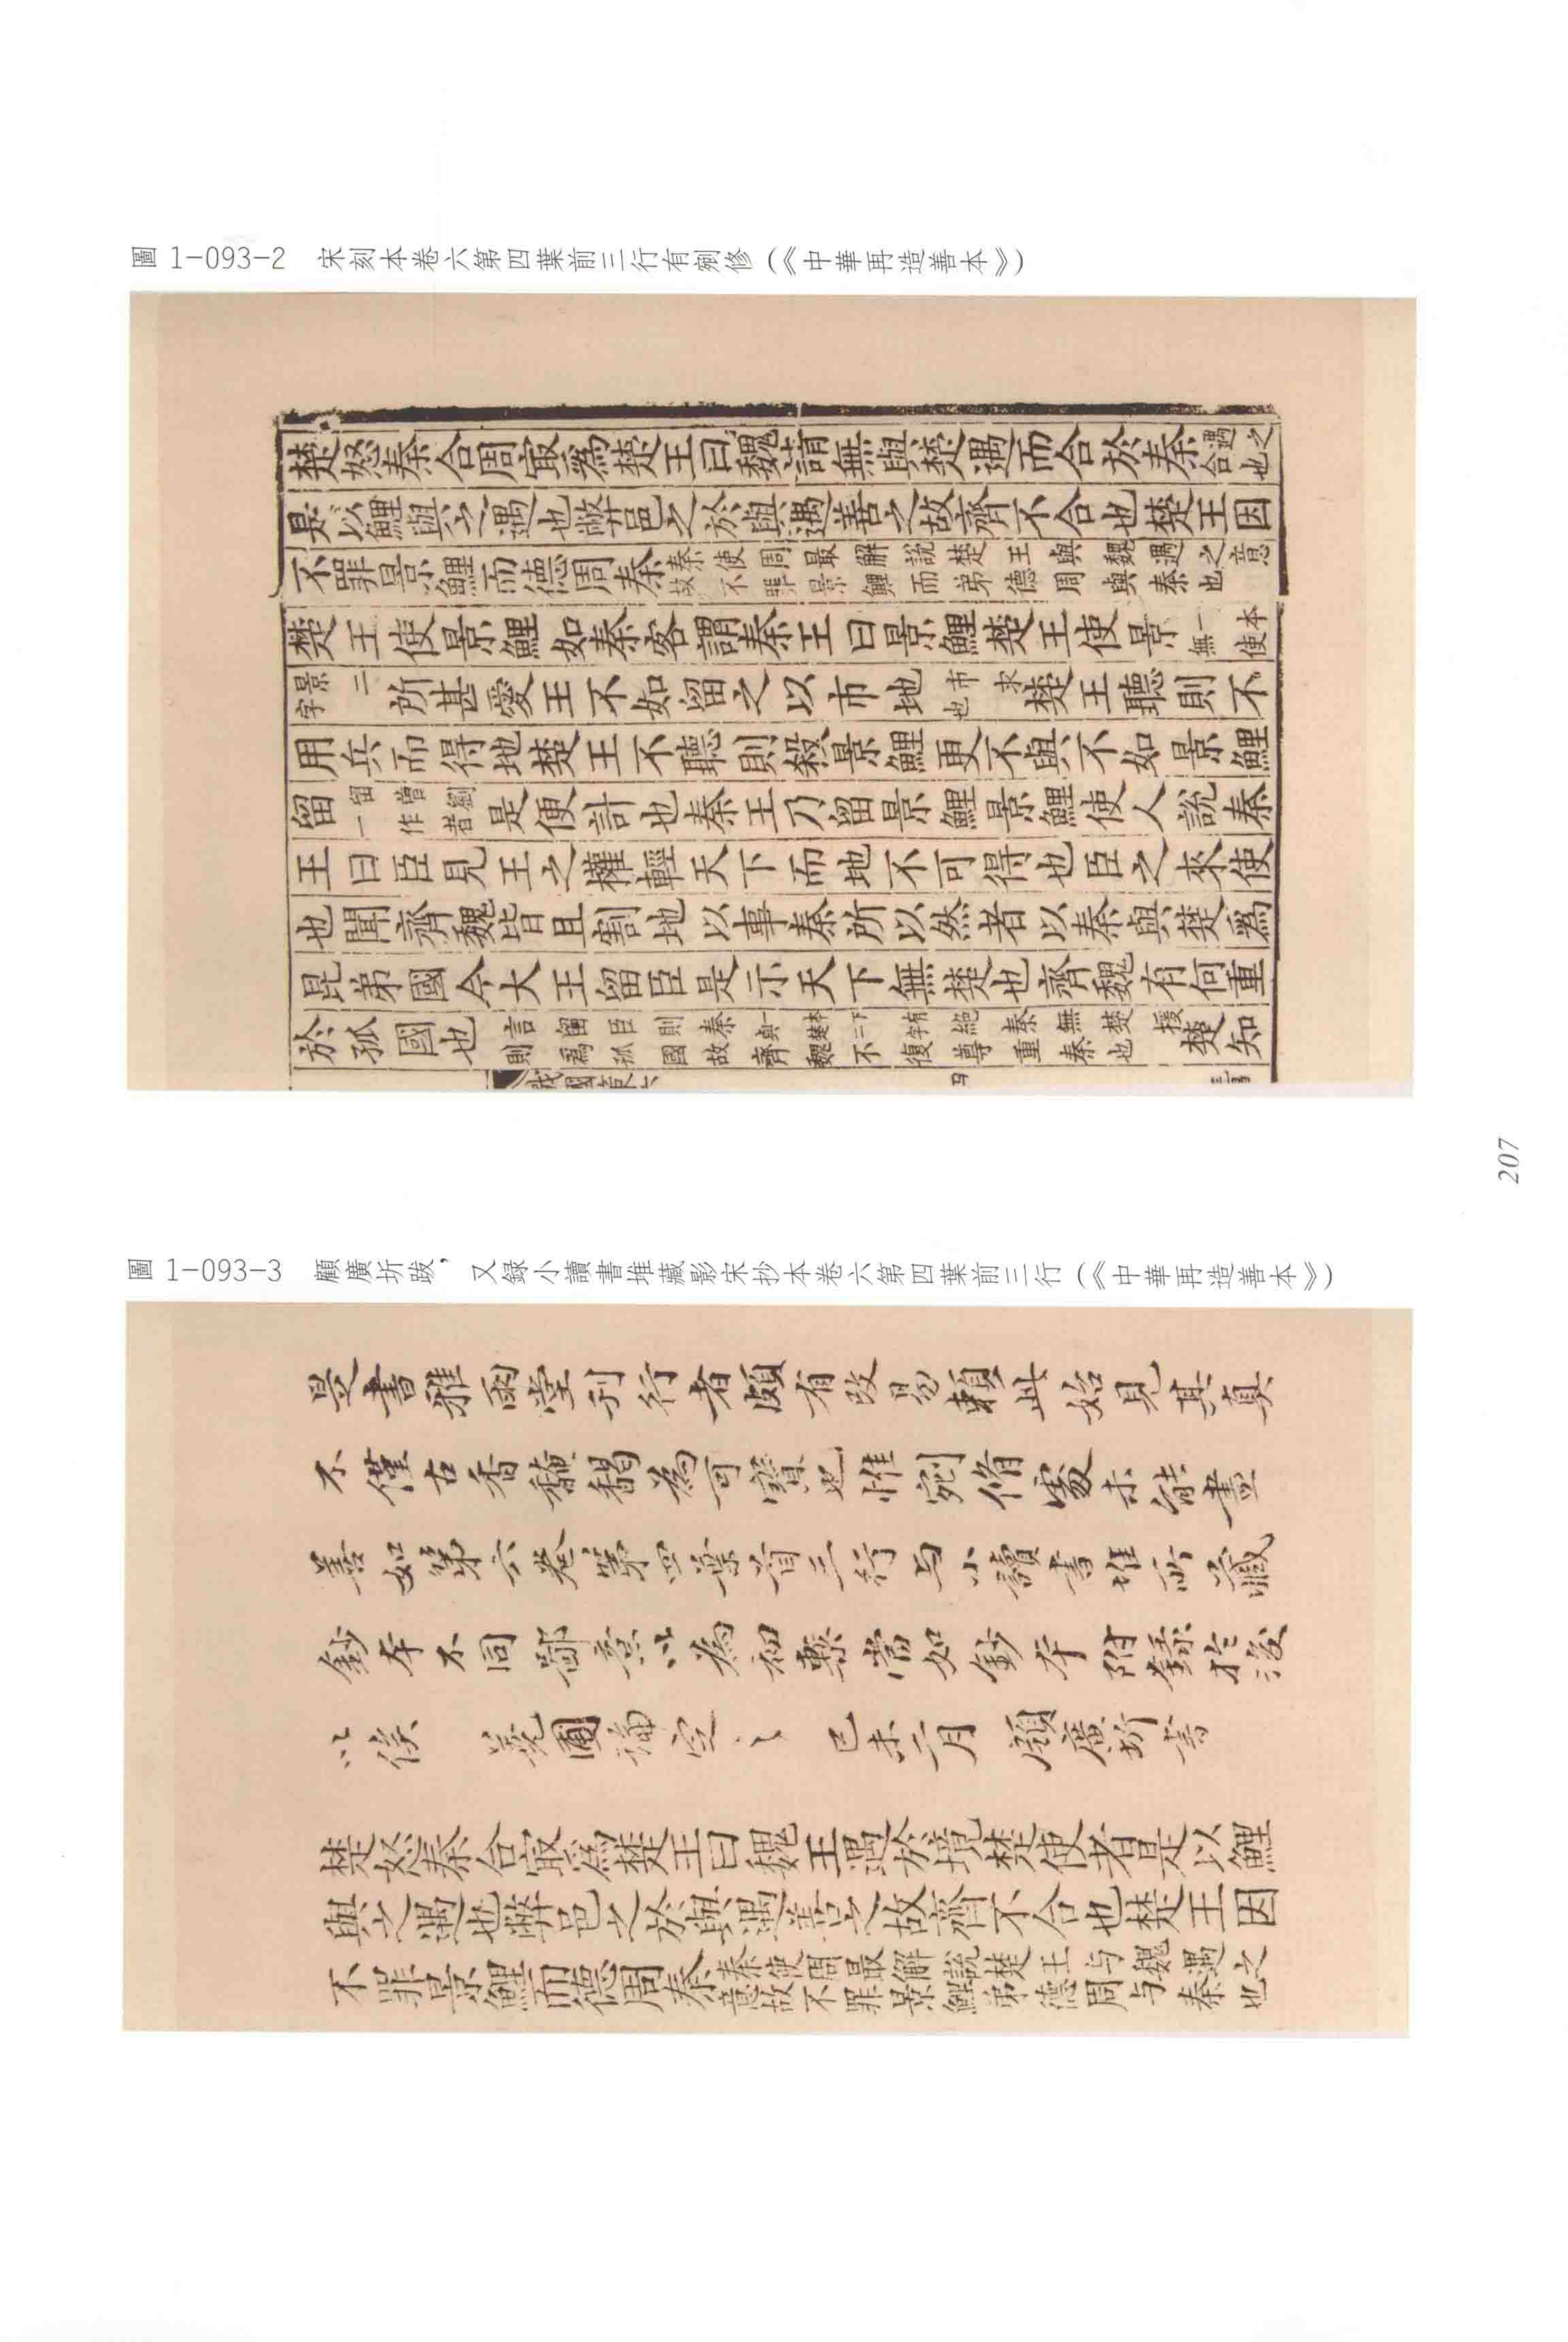 圖 1-093-2　宋刻本卷六第四葉前三行有剜修（《中華再造善本》）
楚怒秦合周㝡爲楚王曰魏請無與楚遇而合於秦遇之合也
是以鯉與之遇也弊邑之於與遇善之故齊不合也楚王因
不罪景鯉而德周秦秦使周最解說楚王與魏遇之意故不罪景鯉而弟德周與秦也
楚王使景鯉如秦客謂秦王曰景鯉楚王使景一本無使
景二字所甚愛王不如留之以市地市求也楚王聽則不
用兵而得地楚王不聽則殺景鯉更不與不如景鯉
留留曾劉一作者是便計也秦王乃留景鯉景鯉使人說秦
王曰臣見王之權輕天下而地不可得也臣之來使
也聞齊魏皆且割地以事秦所以然者以秦與楚爲
昆弟國今大王留臣是示天下無楚也齊魏有何重
於孤國也言留臣則秦絕秦無楚援則爲孤國故齊魏不復尊重秦也楚知
圖 1-093-3　顧廣圻跋，又録小讀書堆藏影宋抄本卷六第四葉前三行（《中華再造善本》）
是書雅雨堂刊行者頗有改易賴此始見其真
不僅古香馥馤為可寶也惟剜脩處未能盡
善如第六卷第四葉首三行与小讀書堆所藏
鈔本不同鄙意以為初槧當如鈔本附錄於後
以俟　蕘圃論定之　己未二月　顧廣圻書
楚怒秦合㝡爲楚王曰魏王遇於境楚使者是以鯉
與之遇也弊邑之於與遇善之故齊不合也楚王因
不罪景鯉而德周秦秦使周最解說楚王与魏遇之意故不罪景鯉弟德周与秦也
207